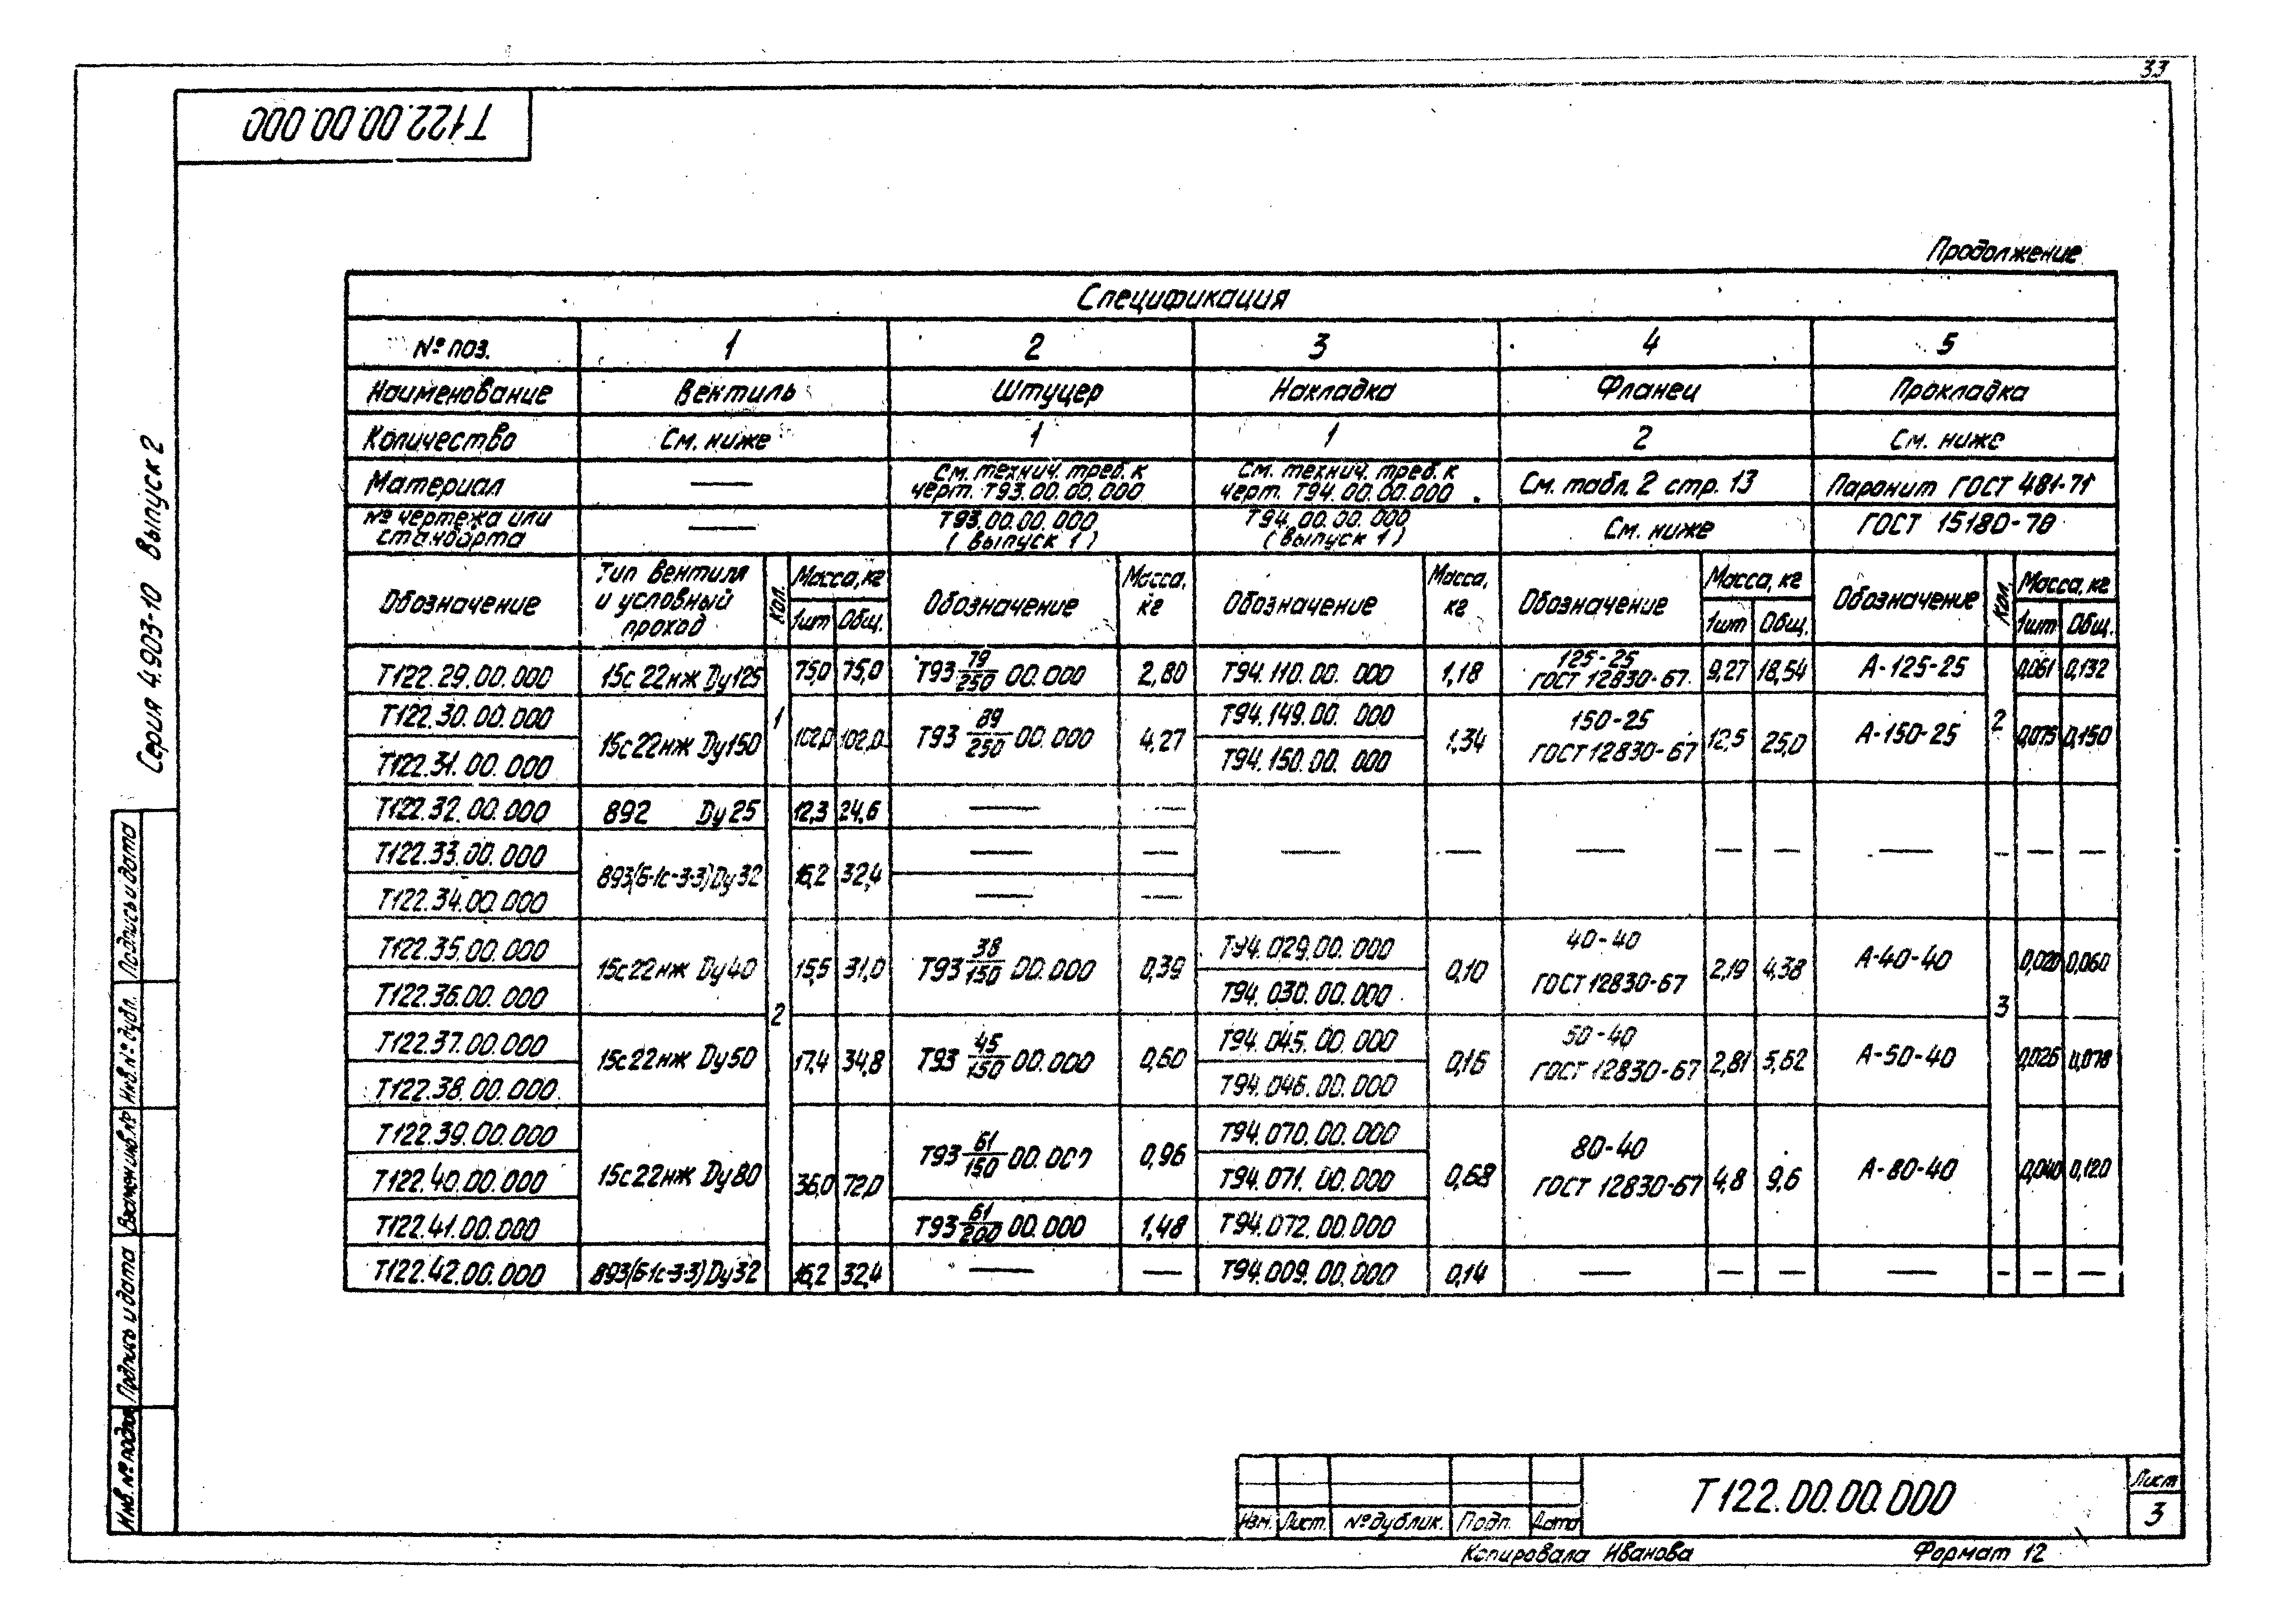 33
Т122.00.00.000
Серия 4.903-10 Выпуск 2
Продолжение
Спецификация
№ поз. 1 2 3 4 5
Наименование Вентиль Штуцер Накладка Фланец Прокладка
Количество См. ниже 1 1 2 См. ниже
Материал — См. технич. треб. к черт. Т93.00.00.000 См. технич. треб. к черт. Т94.00.00.000 См. табл. 2 стр. 13 Паронит ГОСТ 481-71
№ чертежа или стандарта — Т93.00.00.000 (выпуск 1) Т94.00.00.000 (выпуск 1) См. ниже ГОСТ 15180-70
Обозначение Тип вентиля и условный проход Кол. Масса, кг 1шт Общ. Обозначение Масса, кг Обозначение Масса, кг Обозначение Масса, кг 1шт Общ. Обозначение Кол. Масса, кг 1шт Общ.
Т122.29.00.000 15с22нж Dу125 1 75,0 75,0 Т93 79/250 00.000 2,80 Т94.110.00.000 1,18 125-25 ГОСТ 12830-67 9,27 18,54 А-125-25 2 0,061 0,132
Т122.30.00.000 15с22нж Dу150 102,0 102,0 Т93 89/250 00.000 4,27 Т94.149.00.000 1,34 150-25 ГОСТ 12830-67 12,5 25,0 А-150-25 0,075 0,150
Т122.31.00.000 Т94.150.00.000
Т122.32.00.000 892 Dу25 12,3 24,6 — —
Т122.33.00.000 893(Б-1с-3-3) Dу32 16,2 32,4 — — — — — — — — — — —
Т122.34.00.000 — —
Т122.35.00.000 15с22нж Dу40 15,5 31,0 Т93 38/150 00.000 0,39 Т94.029.00.000 0,10 40-40 ГОСТ 12830-67 2,19 4,38 А-40-40 0,020 0,060
Т122.36.00.000 2 Т94.030.00.000 3
Т122.37.00.000 15с22нж Dу50 17,4 34,8 Т93 45/150 00.000 0,60 Т94.045.00.000 0,16 50-40 ГОСТ 12830-67 2,81 5,62 А-50-40 0,026 0,078
Т122.38.00.000 Т94.046.00.000
Т122.39.00.000 15с22нж Dу80 36,0 72,0 Т93 61/150 00.000 0,96 Т94.070.00.000 0,68 80-40 ГОСТ 12830-67 4,8 9,6 А-80-40 0,040 0,120
Т122.40.00.000 Т94.071.00.000
Т122.41.00.000 Т93 61/200 00.000 1,48 Т94.072.00.000
Т122.42.00.000 893(Б-1с-3-3) Dу32 16,2 32,4 — — Т94.009.00.000 0,14 — — — — — — —
Инв. № подл. Подпись и дата Взамен инв. № Инв. № дубл. Подпись и дата
Изм. Лист. № дублик. Подп. Дата
Т122.00.00.000
Лист
3
Копировала Иванова Формат 12